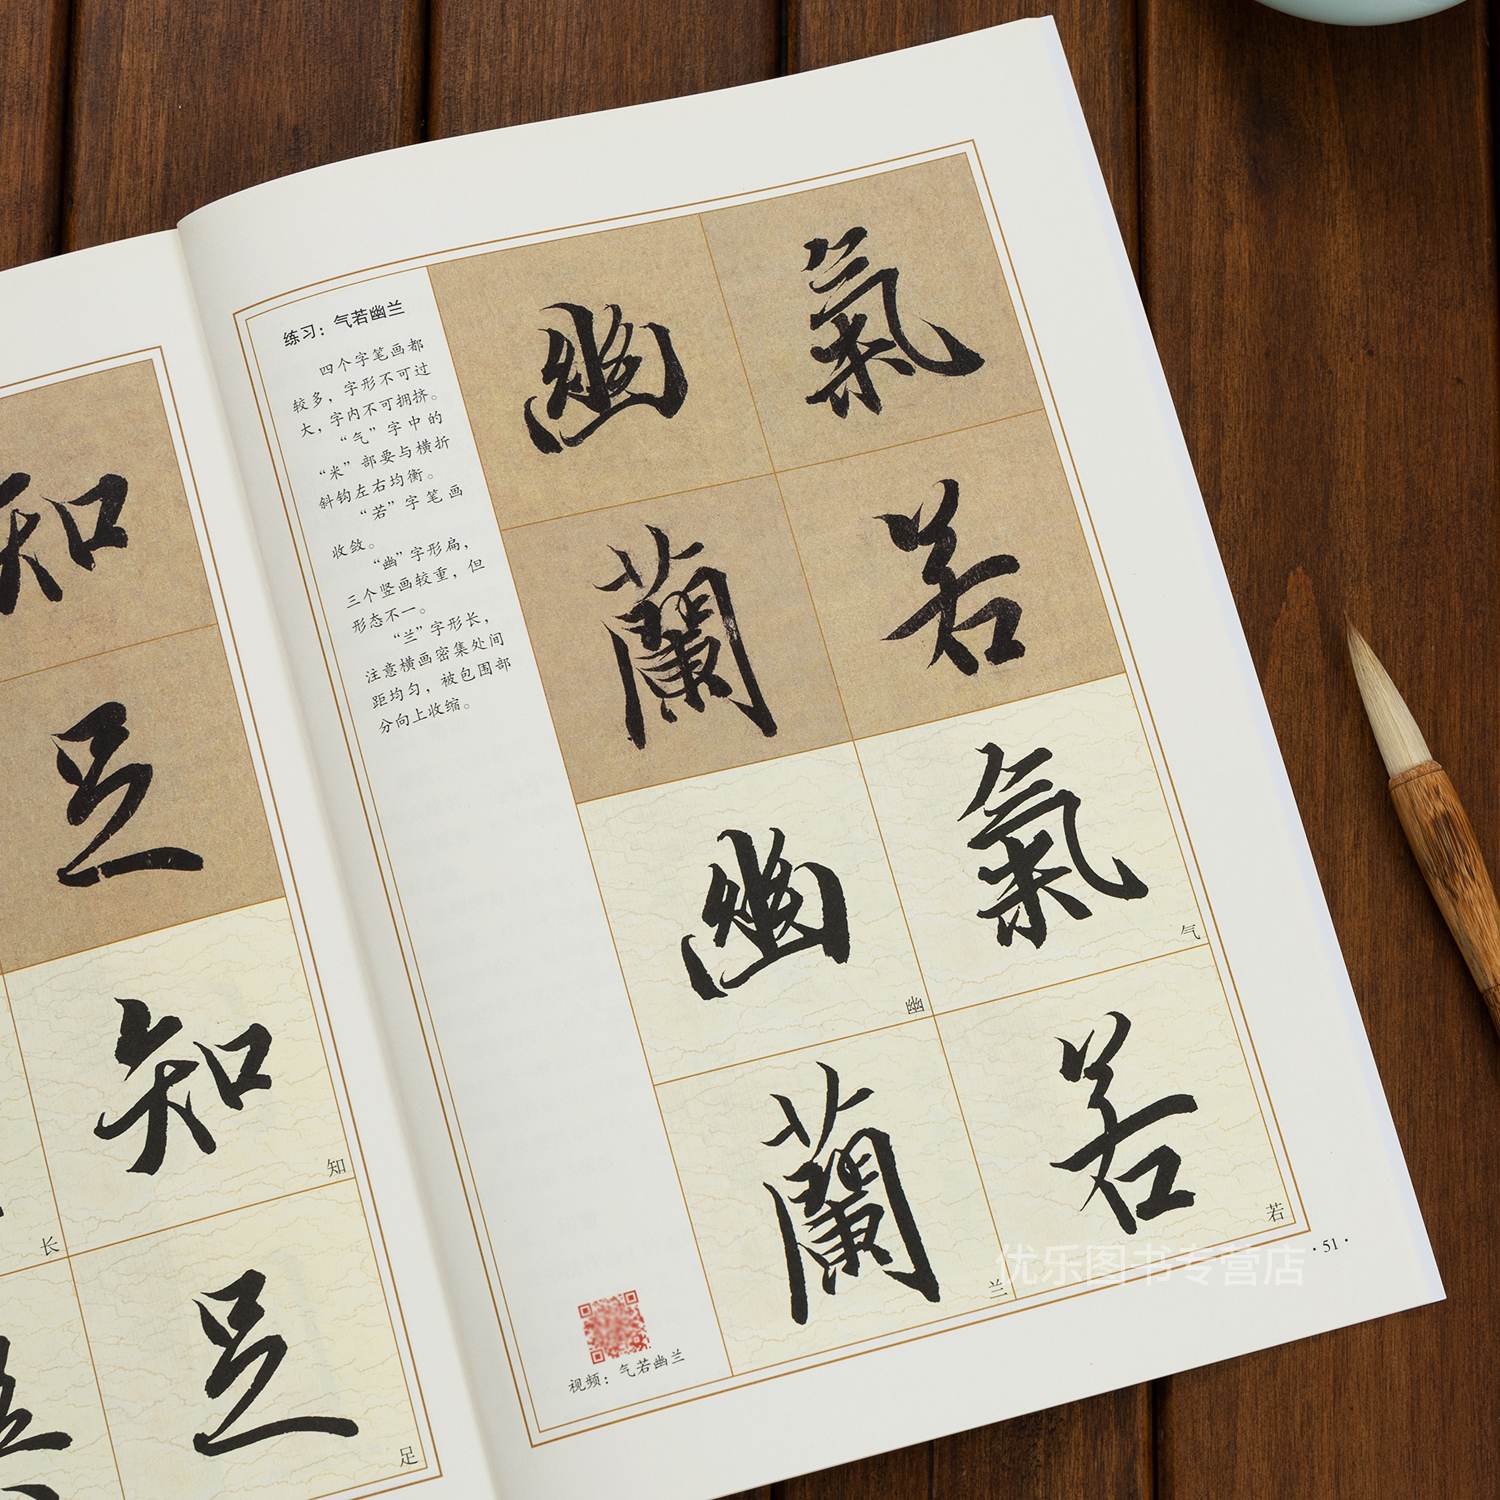 知
足
知
知
长
足
足
练习：气若幽兰
四个字笔画都
较多，字形不可过
大，字内不可拥挤。
“气”字中的
“米”部要与横折
斜钩左右均衡。
“若”字笔画
收敛。
“幽”字形扁，
三个竖画较重，但
形态不一。
“兰”字形长，
注意横画密集处间
距均匀，被包围部
分向上收缩。
氣
若
幽
蘭
氣
气
若
若
幽
幽
蘭
兰
视频：气若幽兰
·51·
优乐图书专营店